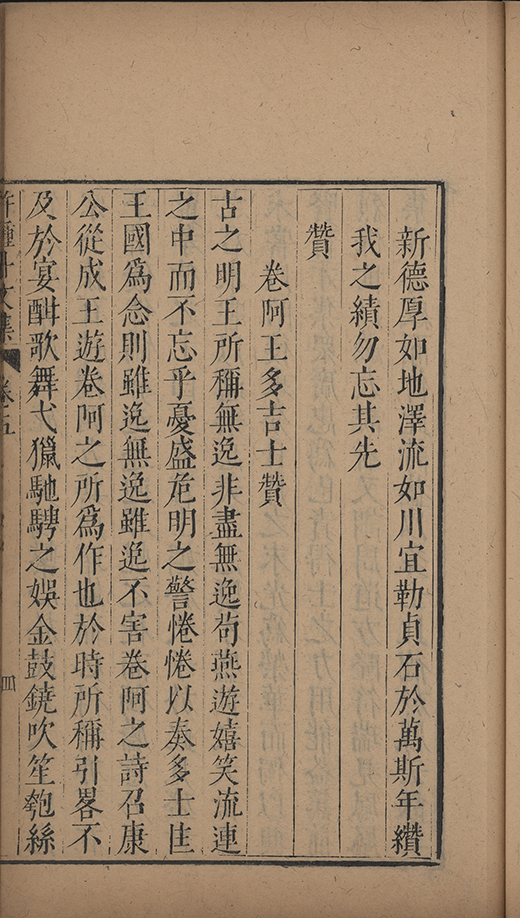 新德厚如地澤流如川宜勒貞石於萬斯年纘
我之績勿忘其先
贊
卷阿王多吉士贊
古之明王所稱無逸非盡無逸苟燕遊嬉笑流連
之中而不忘乎憂盛危明之警惓惓以奏多士生
王國爲念則雖逸無逸雖逸不害卷阿之詩召康
公從成王遊卷阿之所爲作也於時所稱引畧不
及於宴酣歌舞弋獵馳騁之娛金鼓鐃吹笙匏絲
許鍾斗文集
卷五
四